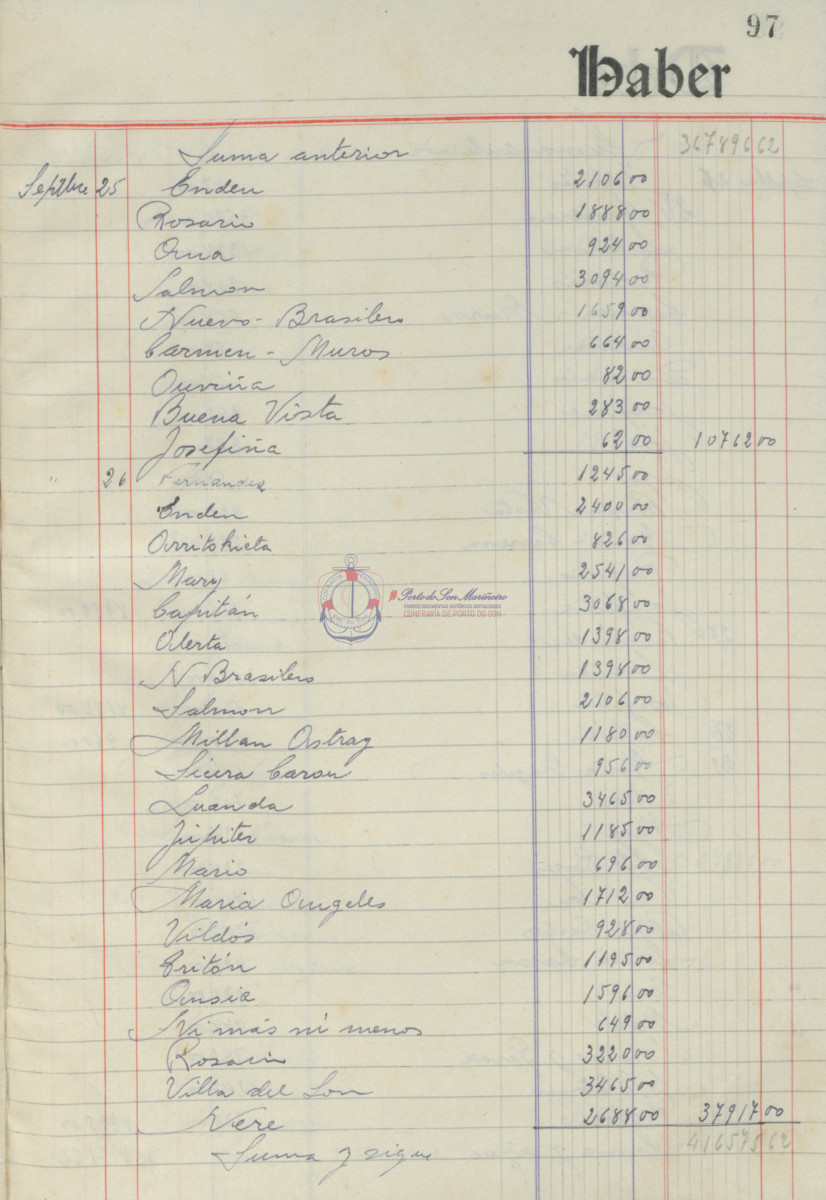 97
Haber
Suma anterior 36789662
Septbre 25 Enden 210600
Rosario 188800
Ana 92400
Salmon 309400
Nuevo-Brasilero 165900
Carmen - Muros 66400
Ouviña 8200
Buena Vista 28300
Josefiña 6200 1076200
" 26 Fernandez 124500
Enden 240000
Arritokieta 82600
Mary 254100
Capitán 306800
Alerta 139800
N Brasilero 139800
Salmon 210600
Millan Astray 118000
Sieira Caron 95600
Luanda 346500
Jupiter 118500
Mario 69600
Maria Angeles 171200
Vildós 92800
Tritón 119500
Ansia 159600
Ni más ni menos 64900
Rosario 322000
Villa del Son 346500
Nere 268800 3791700
Suma y sigue 41657562
#PortodeSon Mariñeiro
FONDOS DOCUMENTAIS HISTÓRICOS DIXITALIZADOS
CONFRARÍA DE PORTO DO SON